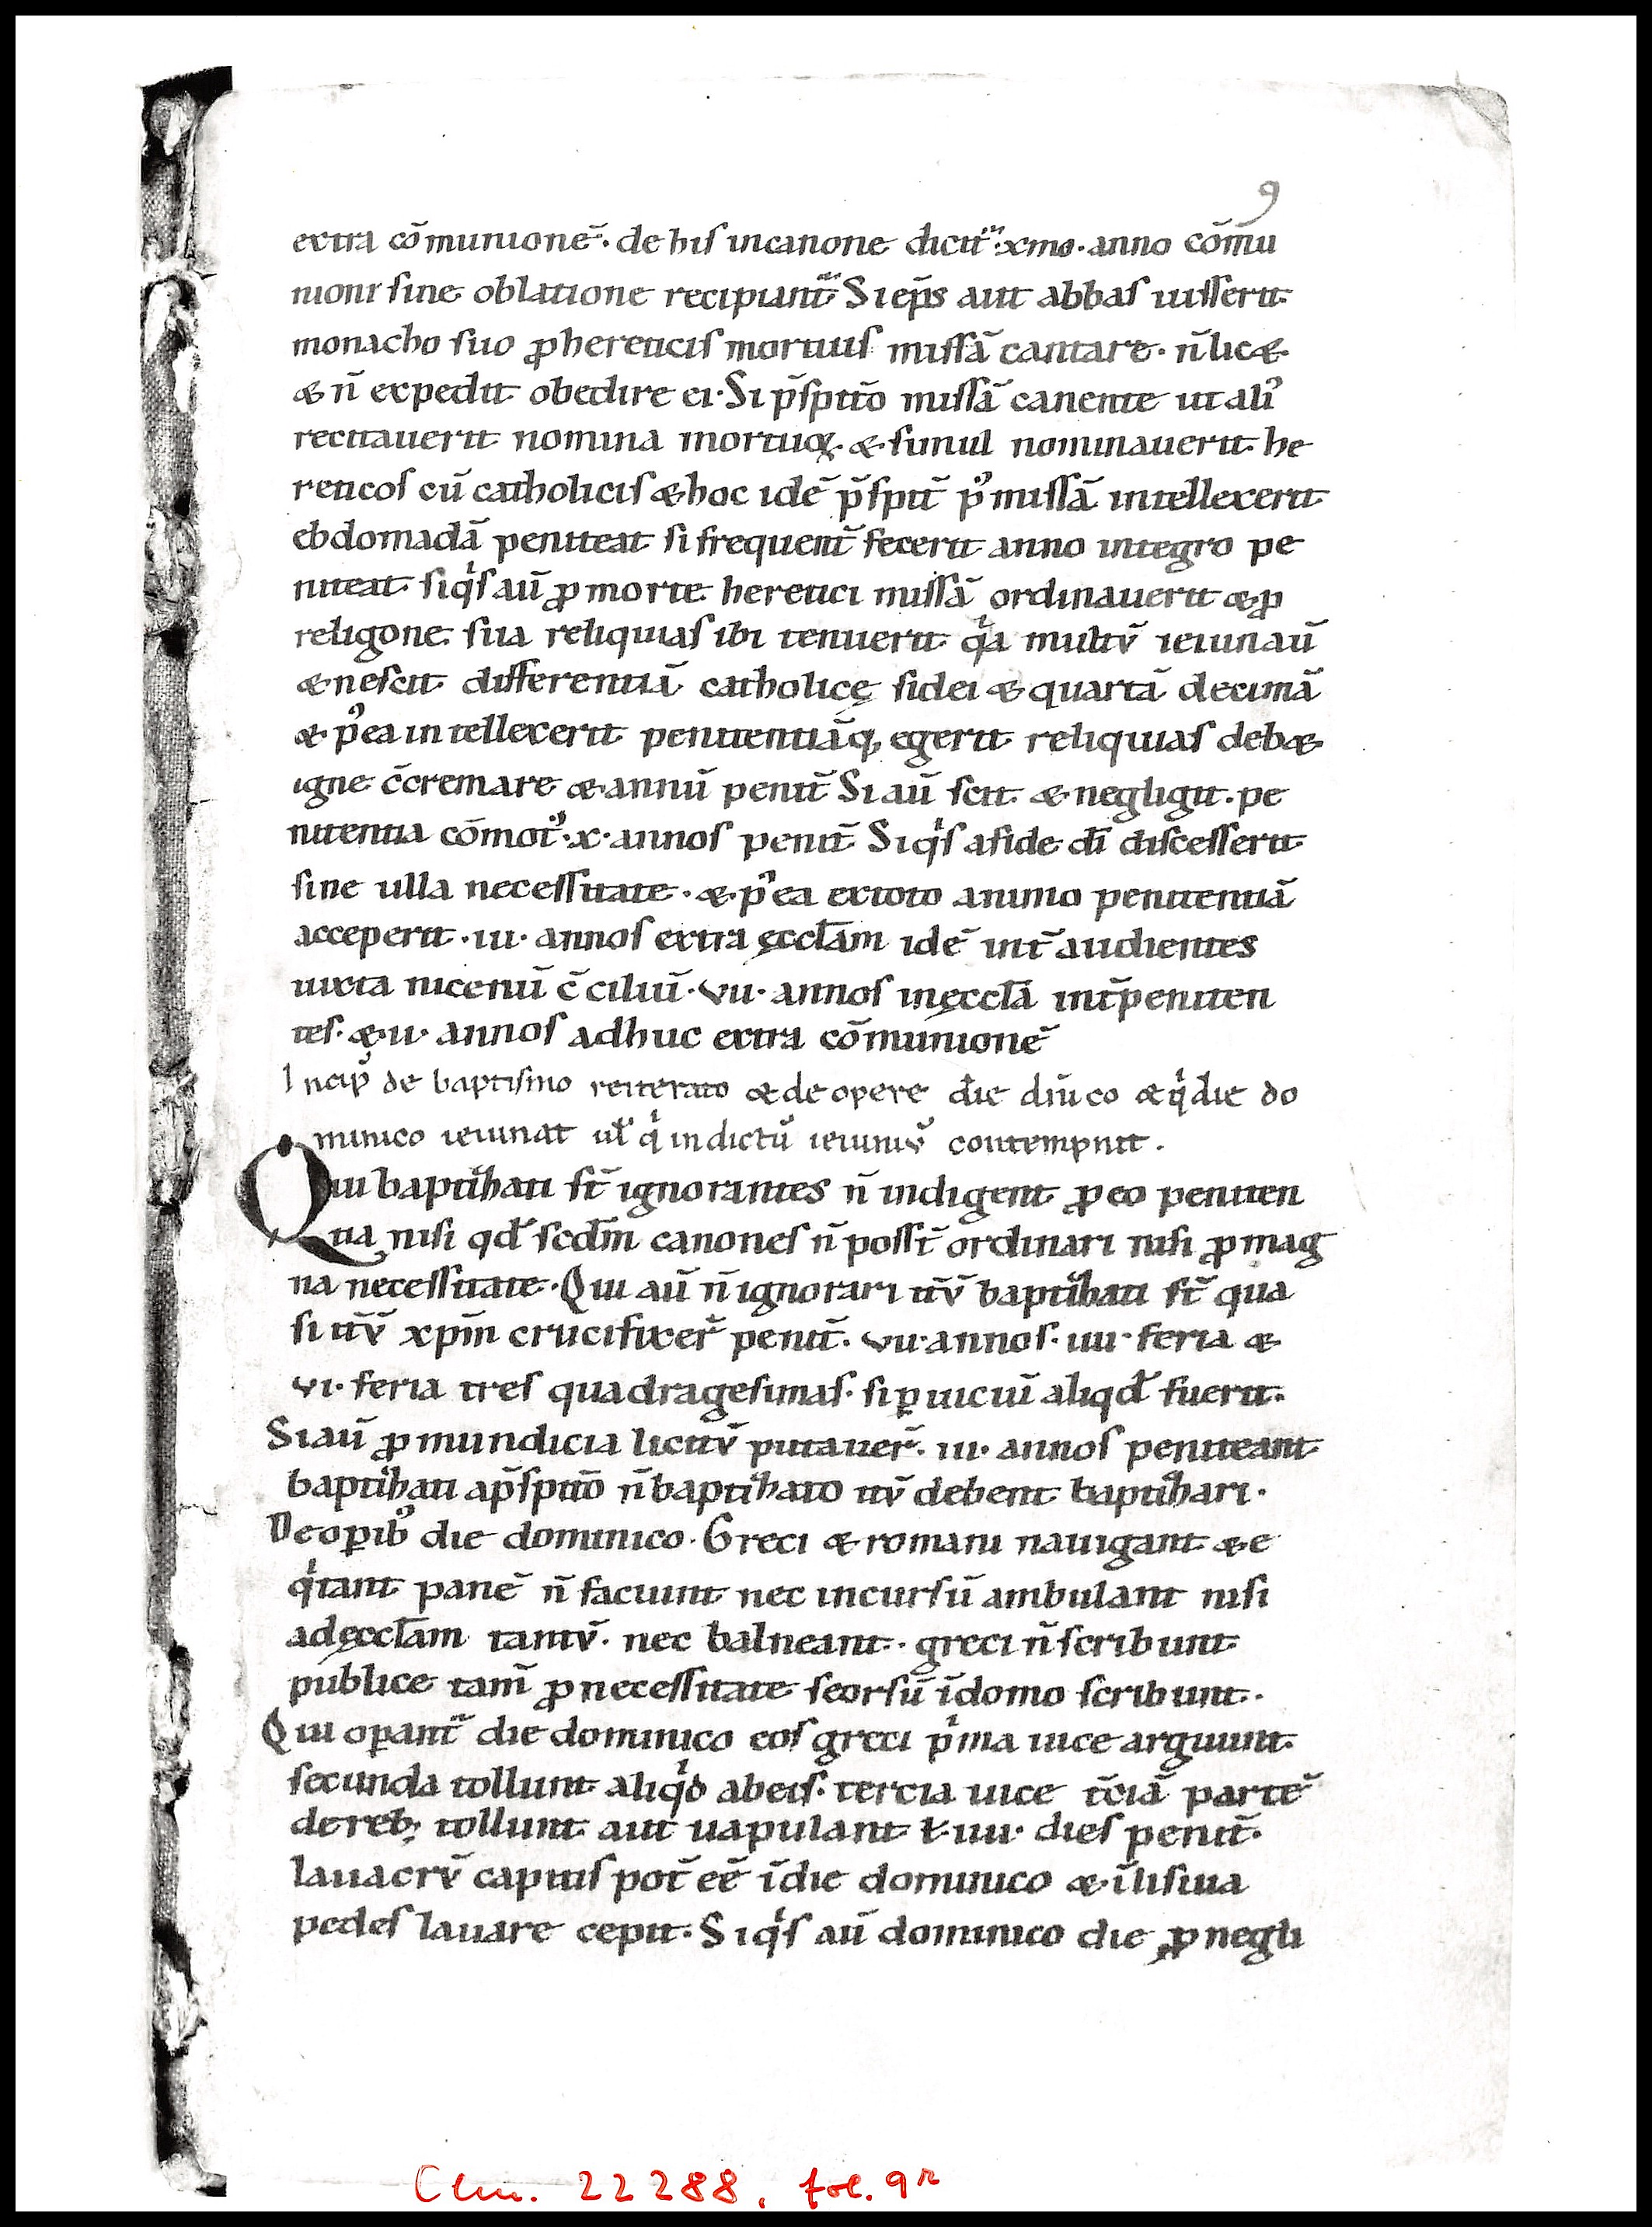 9
extra cōmunionē. de his incanone dicit᷑. xmo. anno cōmu
nioni sine oblatione recipiant᷑ Si ep̄s aut abbas iusserit
monacho suo ꝓ hereticis mortuis missā cantare. n̄ lic&
& n̄ expedit obedire ei. Si p̄sp̄ito missā canente ut aliꝰ
recitauerit nomina mortuoꝝ. & simul nominauerit he
reticos cū catholicis & hoc idē p̄sp̄it pꝰ missā intellexerit
ebdomadā peniteat si frequent̄ fecerit anno integro pe
niteat siqͥs aū ꝓ morte heretici missā ordinauerit & ꝓ
religone sua reliquias ibi tenuerit qͥa multū ieiunaū
& nescit differentiā catholicę fidei & quartā decimā
& pꝰea intellexerit penitentiāq; egerit reliquias deb&
igne c̄cremare & annū penit̄ Si aū scit & negligit. pe
nitentia cōmotꝰ. x. annos penit̄ Siqͥs afide dī discesserit
sine ulla necessitate. & pꝰea extoto animo penitentiā
acceperit. iii. annos extra ęcclam̄ idē int̄ audientes
iuxta nicenū c̄ciliū. vii. annos inęcclā int̄peniten
tes. & ii. annos adhuc extra cōmunionē
Incip̄ de baptismo reiterato & de opere die dn̄ico & qͥ die do
minico ieiunat ul̄ qͥ indictū ieiuniū contempnit.
Qui baptihati st̄ ignorantes n̄ indigent ꝓ eo peniten
tia nisi qd̄ scdm̄ canones n̄ posst̄ ordinari nisi ꝓ mag
na necessitate. Qui aū n̄ ignorari it̄ū baptihati st̄ qua
si it̄ū xpm̄ crucifixer̄ penit̄. vii. annos. iiii. feria &
vi. feria tres quadragesimas. si ꝑ uiciū aliqd̄ fuerit.
Si aū ꝓ mundicia licitū putauer̄. iii. annos peniteant
baptihati ap̄sp̄ito n̄ baptihato it̄ū debent baptihari.
De oꝑibꝰ die dominico. Greci & romani nauigant & e
qͥtant panē n̄ faciunt nec incursū ambulant nisi
adęcclam̄ tantū. nec balneant. greci n̄ scribunt
publice tam̄ ꝓ necessitate seorsū īdomo scribunt.
Qui oꝑant᷑ die dominico eos greci pͥma uice arguunt
secunda tollunt aliqͥd abeis. tercia uice t̄ciā partē
dereb; tollunt aut uapulant ł. uii. dies penit̄.
lauacrū capitis pot̄ eē īdie dominico & īlisiua
pedes lauare cepit. Siqͥs aū dominico die ꝓ negli
Clm. 22288, fol. 9r